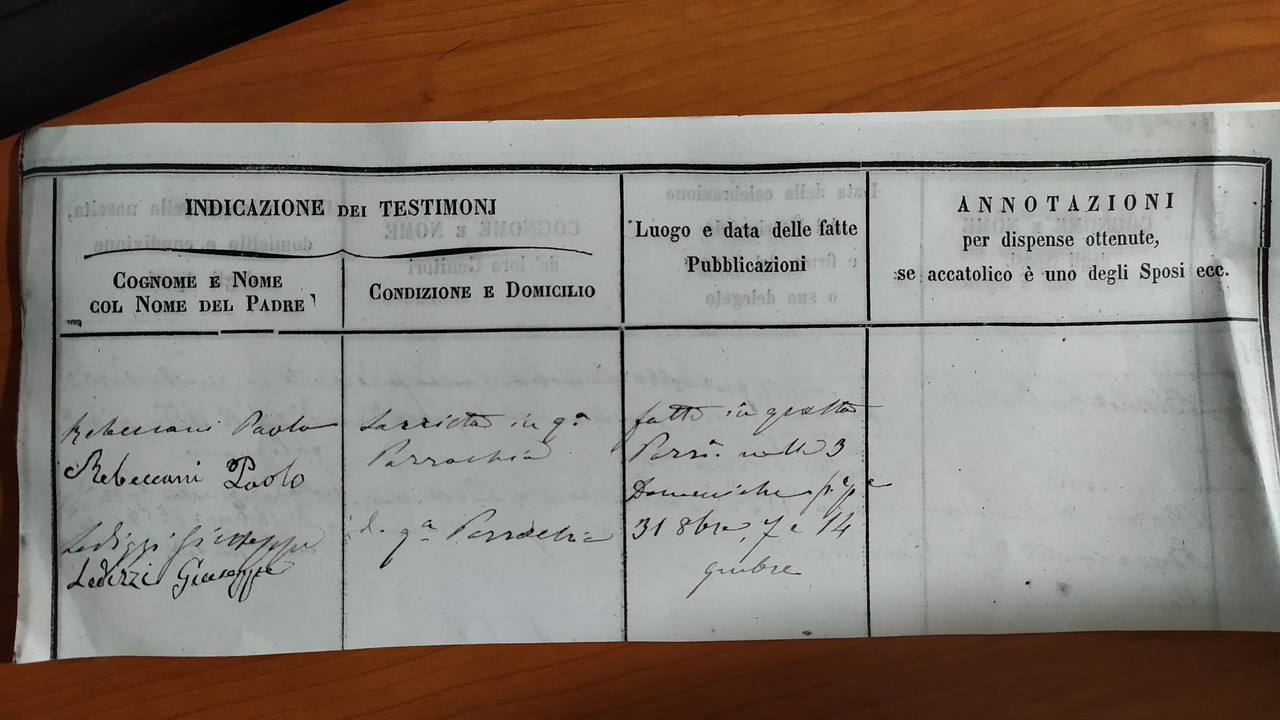 INDICAZIONE DEI TESTIMONJ
COGNOME E NOME
COL NOME DEL PADRE
CONDIZIONE E DOMICILIO
Luogo e data delle fatte
Pubblicazioni
ANNOTAZIONI
per dispense ottenute,
se accatolico è uno degli Sposi ecc.
Rebeccani Paolo
Rebeccani Paolo
Giuseppe
Giuseppe
in qª
Parrochia
di qª Parrochia
fatte in questa
Parrª. nelle 3
Domeniche
31 8bre, 7 e 14
9mbre